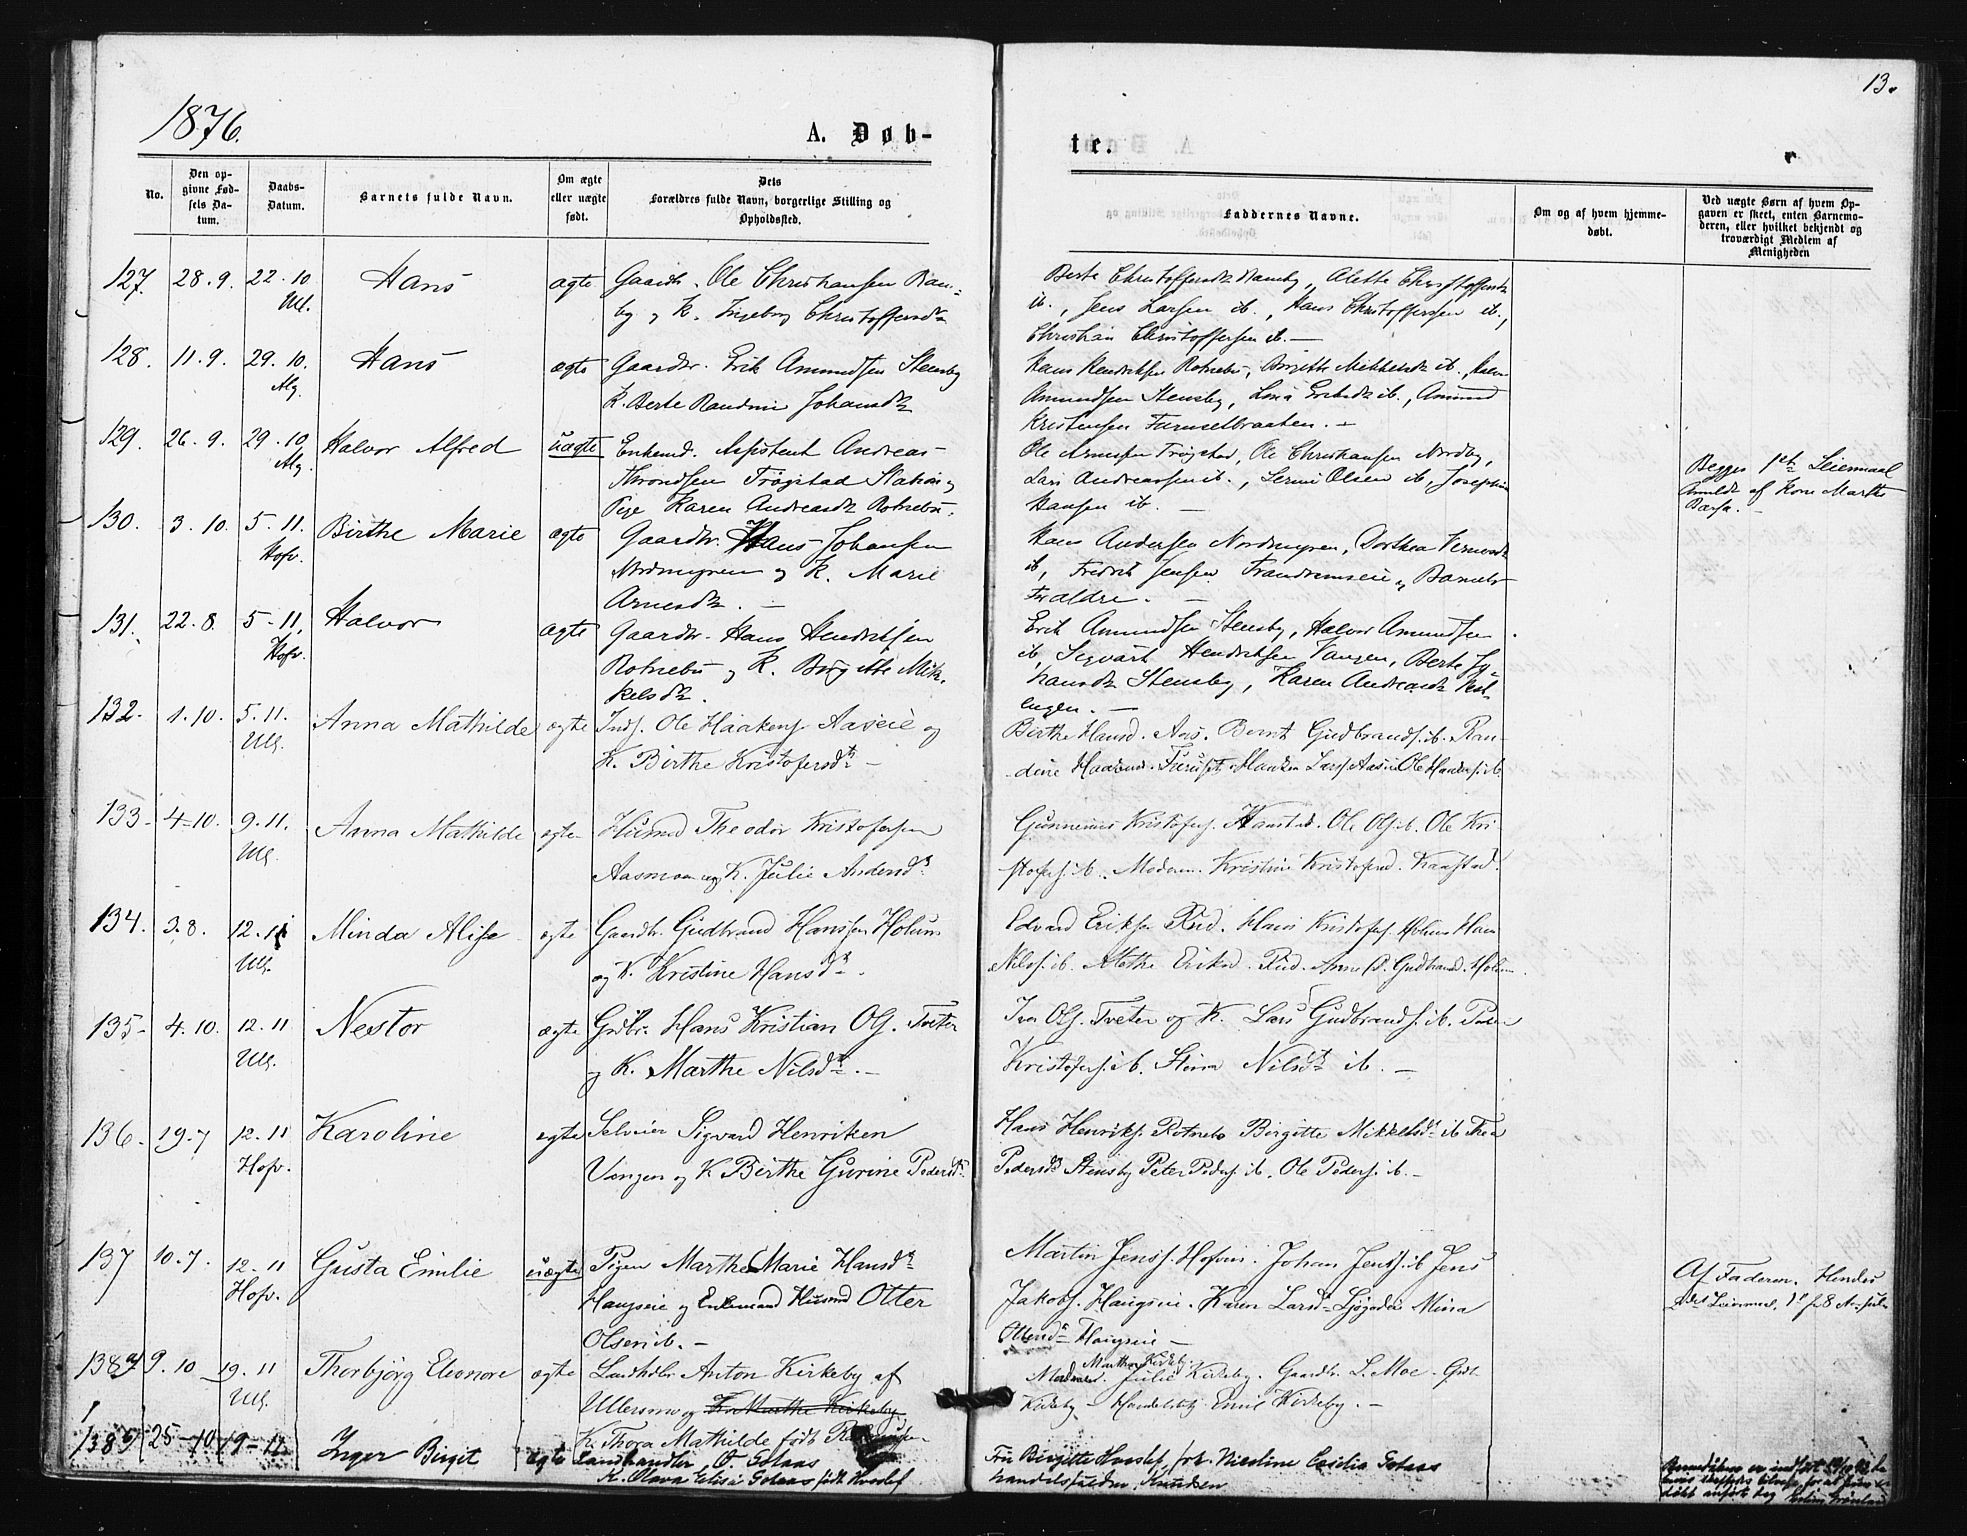 1876.
13.
A. Døb-
te.
No.
Den op-
givne Fød-
sels Da-
tum.
Daabs-
Datum.
Barnets fulde Navn.
Om ægte
eller uægte
født.
Dets
Forældres fulde Navn, borgerlige Stilling og
Opholdssted.
Faddernes Navne.
Om og af hvem hjemme-
døbt.
Ved uægte Børn af hvem Op-
gaven er skeet, enten Barnemo-
deren, eller hvilket bekjendt og
troværdigt Medlem af
Menigheden
127. 28.9. 22.10 Hans ægte Gaardb. Ole Christiansen Ran-
Ull. by og K. Ingeborg Christoffersdtr
Berte Christoffersdtr Ranby, Alette Christoffersdtr
ib., Jens Larsen ib., Hans Christoffersen ib.,
Christian Christoffersen ib. —
128. 11.9. 29.10. Hans ægte Gaardbr. Erik Amundsen Stensby
Alg. K. Berte Randine Johansdtr
Hans Hendriksen Rotnebo, Birgitte Mikkelsdtr ib.,
Amundsen Stensby, Lina ib., Amund
Kristensen Furuselbraaten. —
129. 26.9. 29.10 Halvor Alfred uægte Enkemd. Assistent Andreas
Alg. Throndsen Frøgstad Station og
Pige Karen Andreasdtr Rotnebo.
Ole Arnesen Frøgstad, Ole Christiansen Nordby,
Lars Andreassen ib., Olsen ib, Josephine
Hansen ib. —
Begges 1ste Leiermaal
Anmeldt af Kone Marthe
130. 3.10. 5.11. Birthe Marie ægte Gaardbr. Hans Johansen
Hofv. Nordmyren og K. Marie
Arnesdtr. —
Hans Andersen Nordmyren, Dorthea
ib, Fredrik Jensen og Barnets
Forældre. —
131. 22.8. 5-11. Halvor ægte Gaardbr. Hans Hendriksen
Hofv. Rotnebo og K. Birgitte Mik-
kelsdtr.
Erik Amundsen Stensby, Halvor Amundsen
ib, Segvart Hendriksen Vangen, Berte Jo-
hansdtr Stensby, Karen Andreasdtr
engen. —
132. 1.10. 5.11. Anna Mathilde ægte Inds. Ole Haakens. Aaseie og
Ull. K. Birthe Kristofersdtr —
Birthe Hansd. Aas. Bernt Gudbrands. ib. Ran-
dine Haakensd. Furuset Lars. Aaseie Ole Haakens. ib
133. 4-10. 9.11. Anna Mathilde ægte Husmd Theodor Kristofersen
Ull. Aasmoen og K. Julie Andersdtr
Kristofers. Ole Ols. ib. Ole Kri
stofers. ib. Moderen. Kristine Kristofersd.
134. 3.8. 12.11 Minda Alise ægte Gaardb. Gudbrand Hanssen Holum
Ull. og K. Kristine Hansdtr.
Edvard Eriksen Rud. Hans Kristofers. Holum Hans
Nils. ib. Alethe Eriksd. Rud. Anne Gudbrandsd. Holum
135. 4.10. 12.11 Nestor ægte Grdbr. Hans Kristian Ols. Tveter
Ull. og K. Marthe Nilsdtr. —
Iver Ols. Tveter og K. Lars Gudbrands. ib. Peder
Kristofers. ib. Nilsdtr ib. —
136. 19.7 12.11 Karoline ægte Selveier Sigvard Henriken
Hofv. Vangen og K Birthe Gurine Pedersdtr
Hans Henriks. Rotnebo Birgitte Mikkelsdtr ib Thea
Pedersdtr Stensby Peter Peders. ib. Ole Peders. ib. —
137 10.7. 12.11 Gusta Emilie uægte Pigen Marthe Marie Hansdtr
Hofv. Haugseie og Enkemand Husmd Otter
Olsen ib. —
Martin Jenss. Hofvin. Johan Jenss. ib Jens
Jakobs. Haugseie. Karen Larsdtr Mina
Ottersdtr Haugseie —
Af Faderen. Hendes
138a 9.10 19.11 Thorbjörg Eleonore ægte Landhdlr Anton Kirkeby af
Ull. Ullersmo og K. Marthe Kirkeby
K. Thora Mathilde født
Marthe Kirkeby.
Julie Kirkeby. Gaardbr. L. Moe.
Kirkeby — Emil Kirkeby. —
138b 25-10 19-11 Inger Birgit ægte Landhandler O. Gotaas
K. Olava Elise Gotaas født Hvoslef
Fru Birgitte Hvoslef, frk. Nicoline Cecilia Gotaas
handelsfuldm. Knudsen